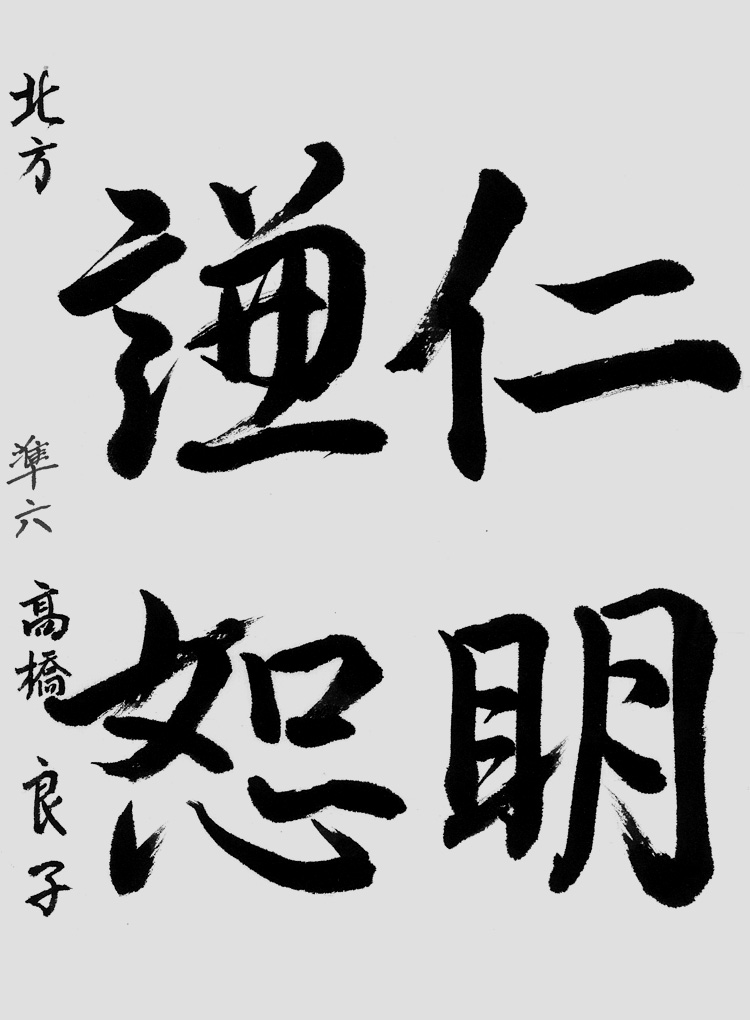 仁明
謙恕
北方 準六 高橋良子